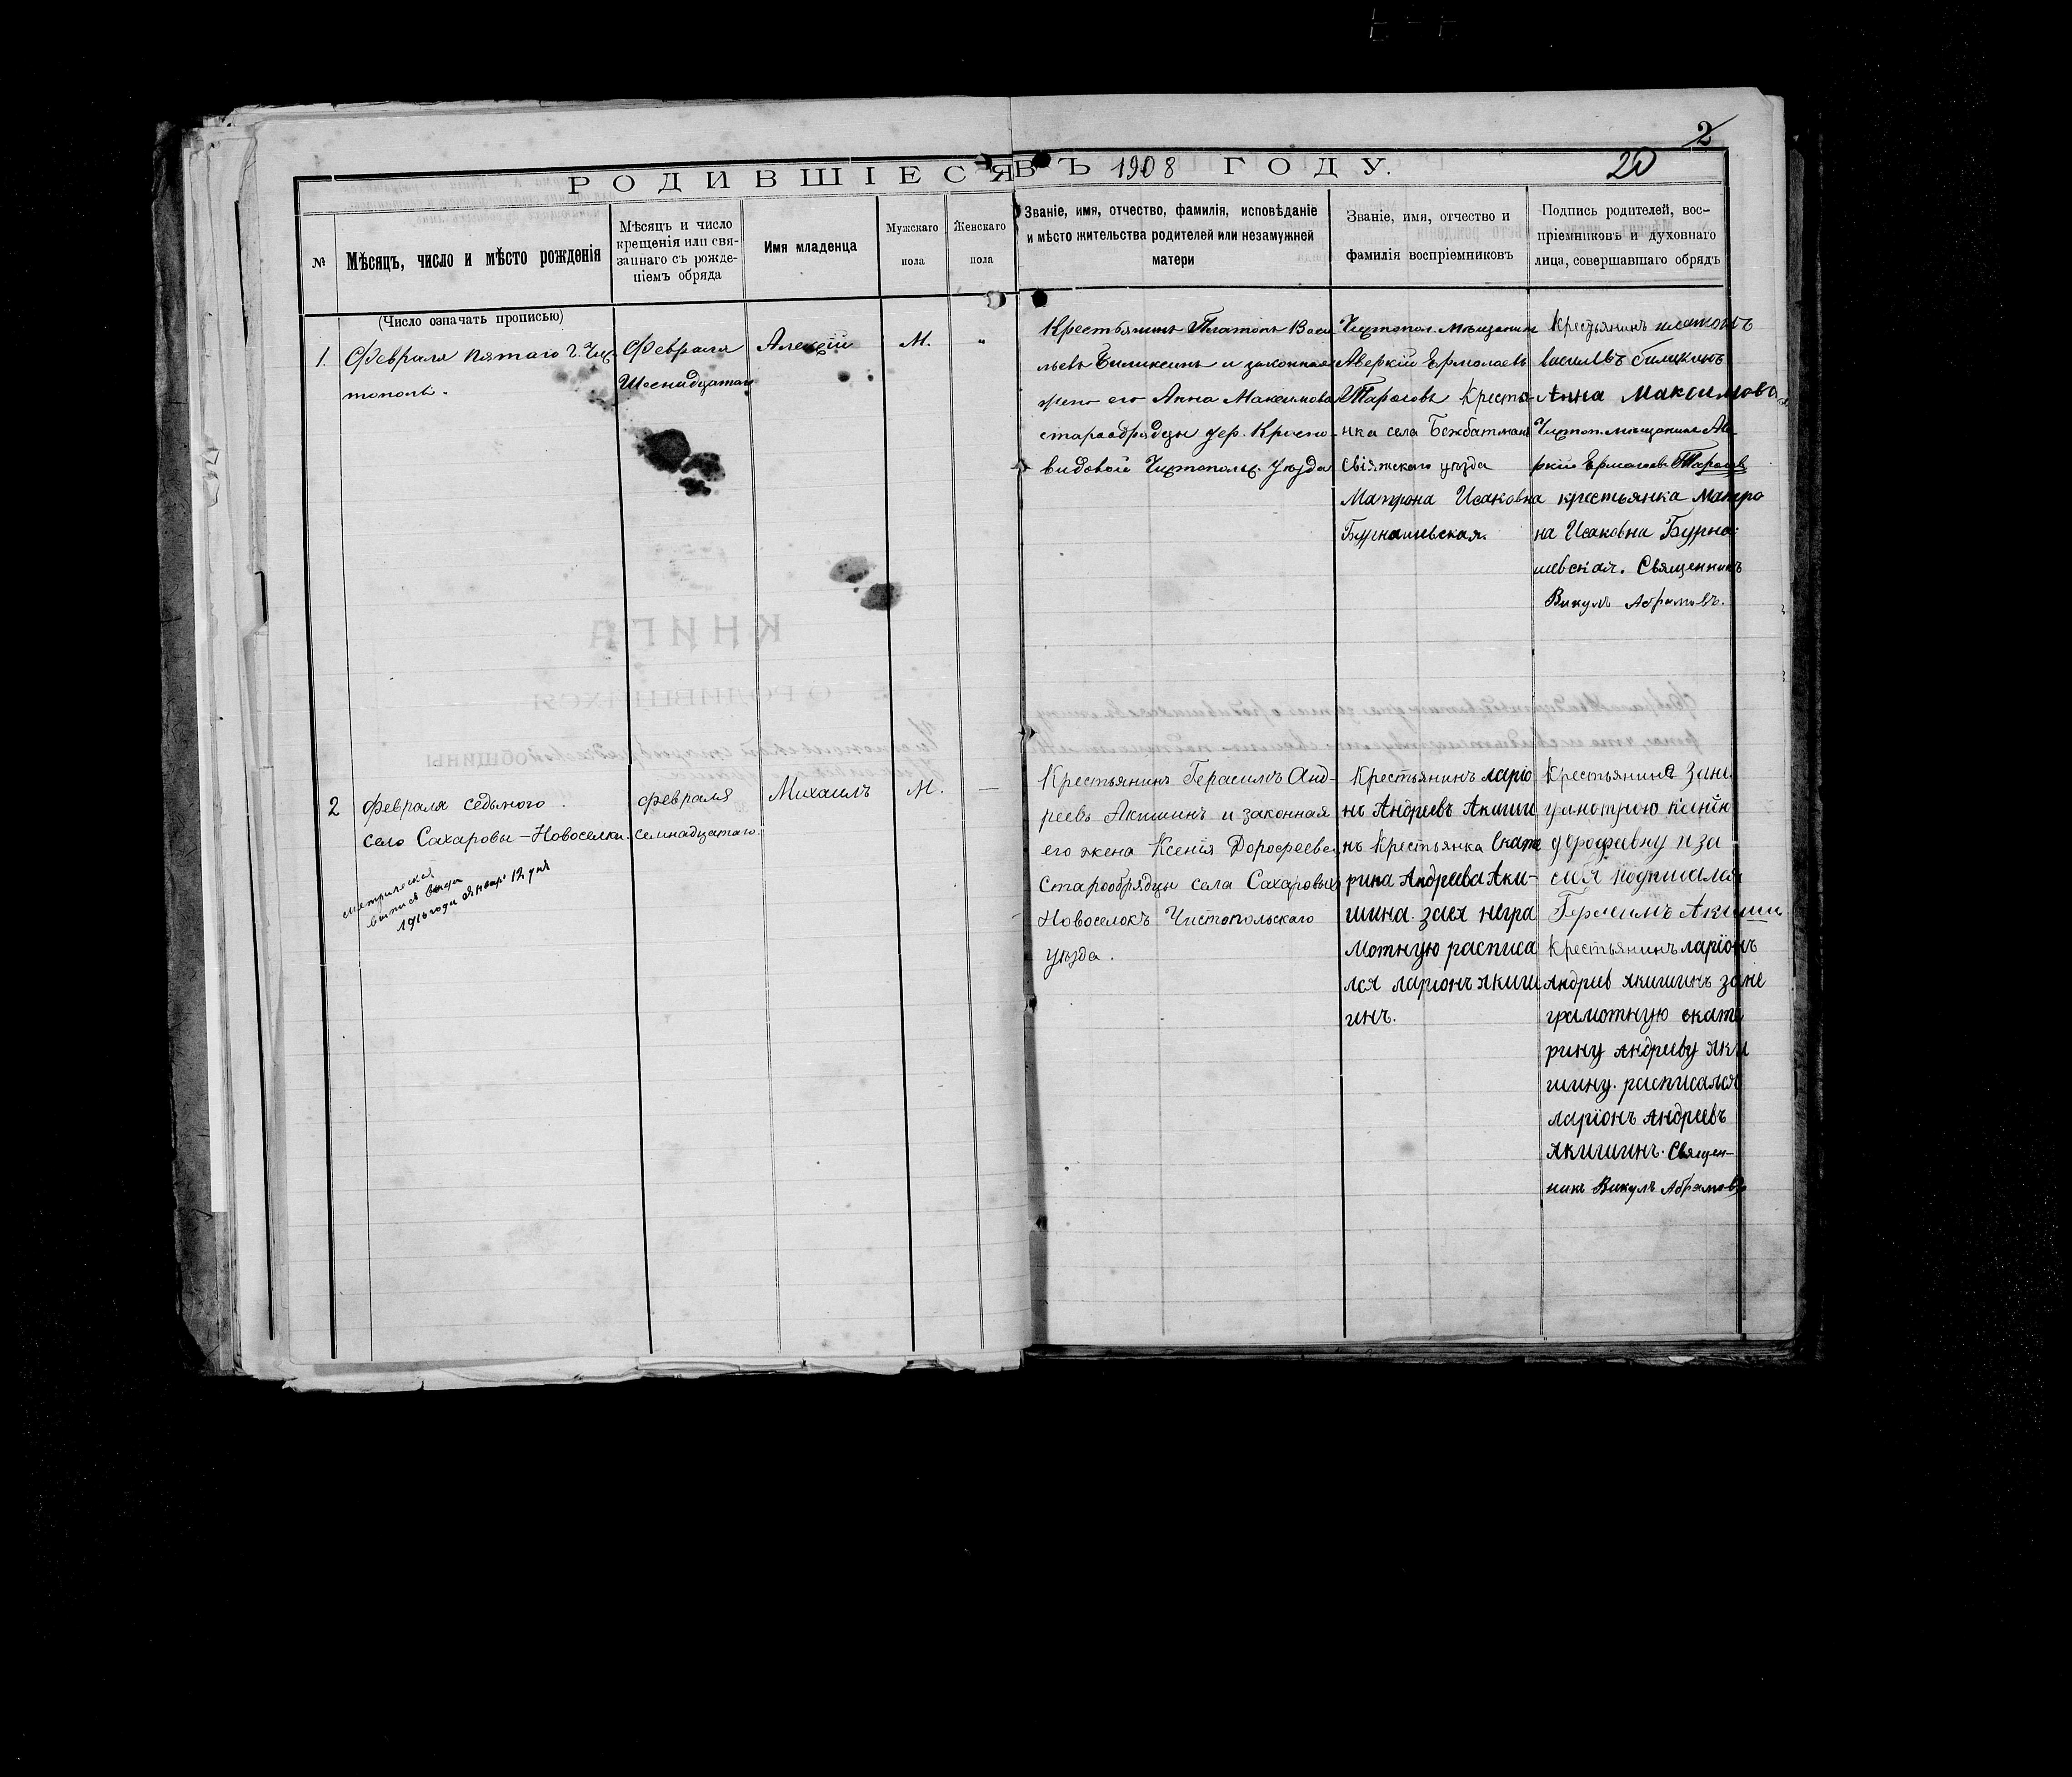 2
20
РОДИВШІЕСЯ ВЪ 1908 ГОДУ.
№
Мѣсяцъ, число и мѣсто рожденія
Мѣсяцъ и число
крещенія или свя-
заннаго съ рожде-
ніемъ обряда
Имя младенца
Мужскаго
пола
Женскаго
пола
Званіе, имя, отчество, фамилія, исповѣданіе
и мѣсто жительства родителей или незамужней
матери
Званіе, имя, отчество и
фамилія воспріемниковъ
Подпись родителей, вос-
пріемниковъ и духовнаго
лица, совершавшаго обрядъ
(Число означать прописью)
1.
Февраля пятаго г. Чис
тополь.
Февраля
Шеснадцатаго
Алексѣй
М.
"
Крестьянинъ Платонъ Васи
льевъ и законная
жена его Анна Максимова
старообрядцы дер. Красно-
видовой Чистопольс. уѣзда
Чистопол. мѣщанинъ
Аверкій Ермолаевъ
Тарасовъ Кресть-
нка села
Свіяжскаго уѣзда
Матрона Исаковна
Бурнашевская.
Крестьянинъ платонъ
васильвъ
Анна Максимова
Чистоп. мѣщанинъ Аве
ркій Ермолаевъ Тарасовъ
крестьянка Матро
на Исаковна Бурна-
шевская. Священникъ
Викулъ Абрамовъ.
2
Февраля седьмого.
село Сахаровы-Новоселки.
метрическая
выпись выда
1916 года январ 12 дня
февраля
семнадцатаго.
Михаилъ
М.
—
Крестьянинъ Герасимъ Анд-
реевъ Акишинъ и законная
его жена Ксенія Дорофеева
Старообрядцы села Сахаровыхъ
Новоселокъ Чистопольскаго
уѣзда.
Крестьянинъ ларіо
нъ Андреевъ Акиши
нъ Крестьянка Екате
рина Андреева Аки-
шина. заея негра
мотную расписа
лся ларіонъ якиш
инъ.
Крестьянинъ Зани
дорофевну и за
себя подписался
Герасимъ Акишин
Крестьянинъ ларіонъ
андрив якишинъ зане
грамотную екате
рину андриву яки
шину. расписался
ларіонъ Андреевъ
якишинъ. Священ-
никъ Викулъ Абрамовъ
КНИГА
О РОДИВШИХСЯ